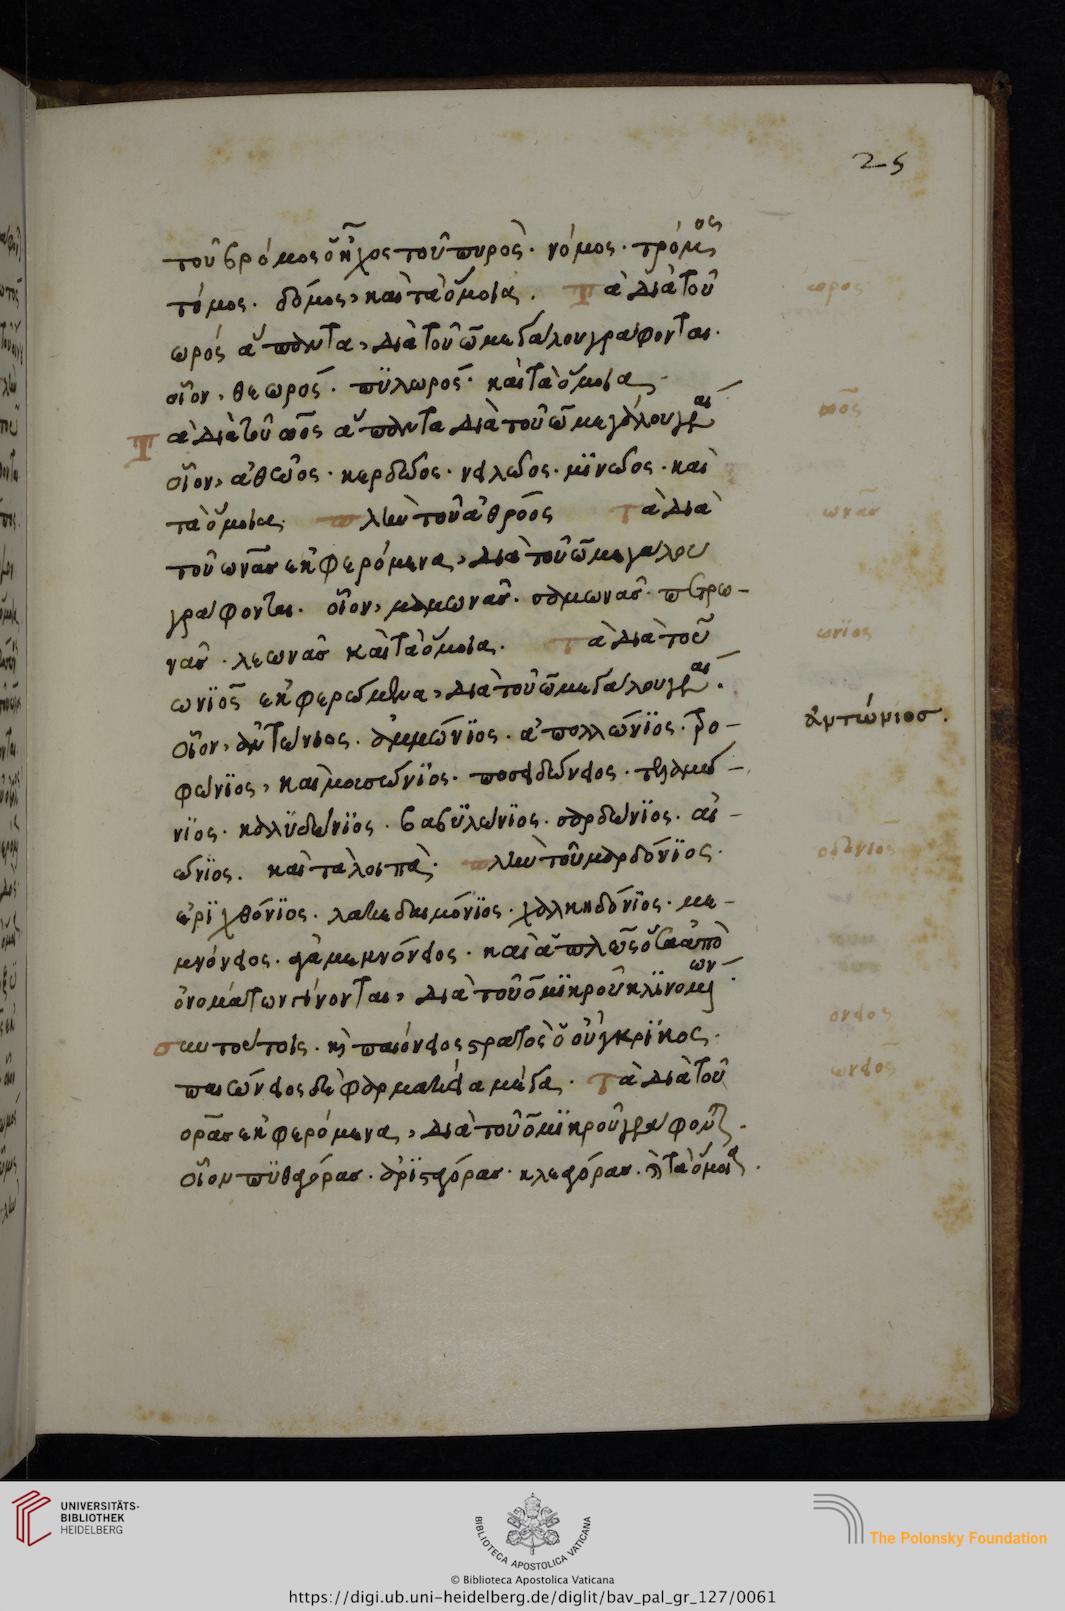 25
τοῦ βρόμος ὁ ἦχος τοῦ πυρός· νόμος· τρόμος
τόμος· δόμος, καὶ τὰ ὅμοια. Τὰ διὰ τοῦ
ωρός ἅπαντα, διὰ τοῦ ω μεγάλου γράφονται·
οἷον, θεωρός· πϋλωρός· καὶ τὰ ὅμοια
Τὰ διὰ τοῦ ωος ἅπαντα διὰ τοῦ ω μεγάλου γρ
οἷον, ἀθῶος· κερδῶος· μϊνῶος· καὶ
τὰ ὅμοια· πλὴν τοῦ ἀθρόος τὰ διὰ
τοῦ ωνας ἐκφερόμενα, διὰ τοῦ ω μεγάλου
γράφονται· οἷον,
νας· λεωνας καὶ τὰ ὅμοια. τὰ διὰ τοῦ
ωνϊος ἐκφερόμενα, διὰ τοῦ ω μεγάλου γρ
οἷον, ἀντώνιος· ἀμμώνϊος· ἀπολλώνϊος· τρο-
φώνϊος, καὶ
νϊος· καλϋδώνϊος· βαβϋλώνϊος· σαρδώνϊος· αἰ-
ώνϊος· καὶ τὰ λοιπά· πλὴν τοῦ μαρδόνϊος·
ἐρϊχθόνϊος· λακεδαιμόνϊος· χαλκηδόνϊος· με-
μνόνειος· ἀγαμεμνόνειος· καὶ ἁπλῶς ὅσα ἀπὸ
ὀνομάτων γίνονται, διὰ τοῦ ο μϊκροῦ κλϊνομένων
σὺν τούτοις· καὶ παιόνειος στρατὸς ὁ οὐγκρϊκος·
παιώνειος δὲ φαρμακεία μέγα· τὰ διὰ τοῦ
ορας ἐκφερόμενα, διὰ τοῦ ο μϊκροῦ γράφονται·
οἷον πϋθαγόρας· ἀρϊσταγόρας· κλεαγόρας· καὶ τὰ ὅμοια.
ωρος
ωος
ωνας
ωνϊος
ἀντώνιοσ.
ονειος
ωνειος
UNIVERSITÄTS-
BIBLIOTHEK
HEIDELBERG
BIBLIOTECA APOSTOLICA VATICANA
The Polonsky Foundation
© Biblioteca Apostolica Vaticana
https://digi.ub.uni-heidelberg.de/diglit/bav_pal_gr_127/0061